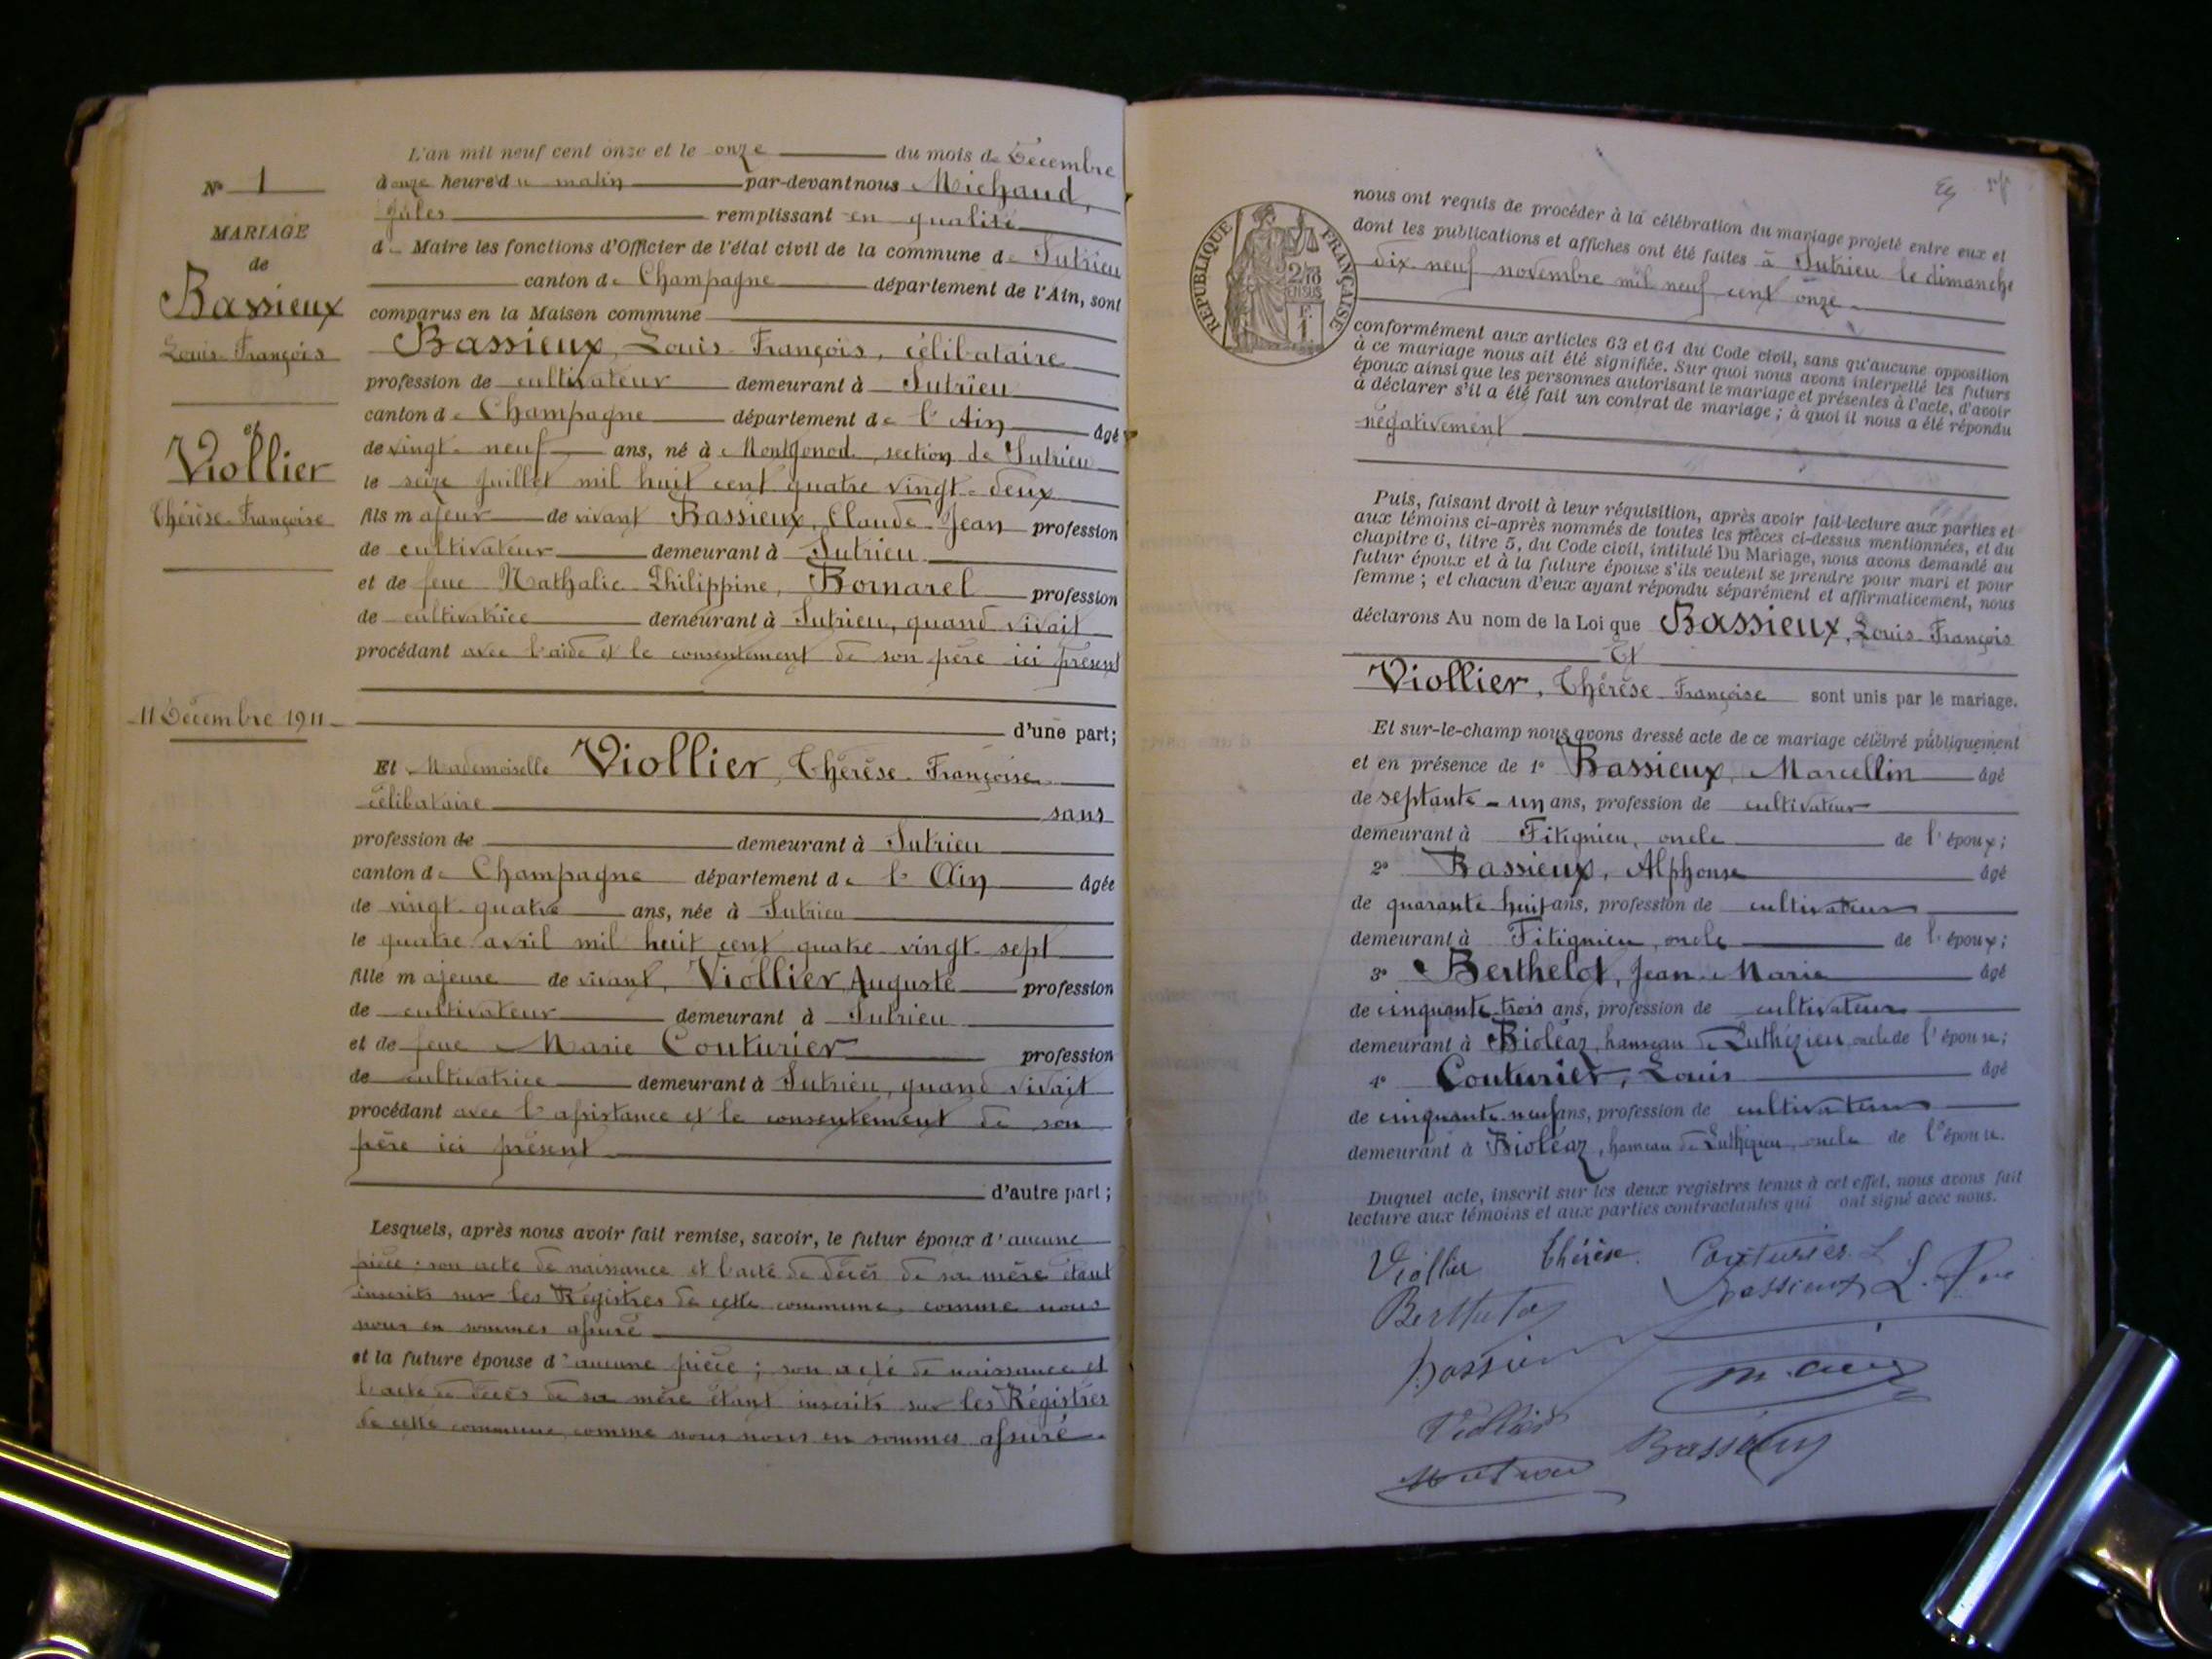 N° 1
MARIAGE
de
Bassieux
Louis-François
et
Viollier
Thérèse-Françoise
11 Décembre 1911
L'an mil neuf cent onze et le onze du mois de Décembre
à onze heures du matin par-devant nous Michaud,
Jules remplissant en qualité
de Maire les fonctions d'Officier de l'état civil de la commune de Sutrieu
canton de Champagne département de l'Ain, sont
comparus en la Maison commune
Bassieux, Louis-François, célibataire
profession de cultivateur demeurant à Sutrieu
canton de Champagne département de l'Ain âgé
de vingt-neuf ans, né à Montgonod, section de Sutrieu
le seize juillet mil huit cent quatre vingt-deux
fils majeur de vivant Bassieux, Claude-Jean profession
de cultivateur demeurant à Sutrieu
et de feue Nathalie-Philippine, Bornarel profession
de cultivatrice demeurant à Sutrieu, quand vivait
procédant avec l'aide et le consentement de son père ici présent
d'une part;
Et Mademoiselle Viollier, Thérèse-Françoise
célibataire sans
profession de demeurant à Sutrieu
canton de Champagne département de l'Ain âgée
de vingt-quatre ans, née à Sutrieu
le quatre avril mil huit cent quatre-vingt-sept
fille majeure de vivant, Viollier, Auguste profession
de cultivateur demeurant à Sutrieu
et de feue Marie Couturier profession
de cultivatrice demeurant à Sutrieu, quand vivait
procédant avec l'assistance et le consentement de son
père ici présent
d'autre part;
Lesquels, après nous avoir fait remise, savoir, le futur époux d'aucune
pièce: son acte de naissance et l'acte de décès de sa mère étant
inscrits sur les Régistres de cette commune, comme nous
nous en sommes assuré
et la future épouse d'aucune pièce; son acte de naissance et
l'acte de décès de sa mère étant inscrits sur les Régistres
de cette commune, comme nous nous en sommes assuré.
RÉPUBLIQUE FRANÇAISE
2/10 EN SUS
F. 1
nous ont requis de procéder à la célébration du mariage projeté entre eux et
dont les publications et affiches ont été faites à Sutrieu le dimanche
dix-neuf novembre mil neuf cent onze
conformément aux articles 63 et 64 du Code civil, sans qu'aucune opposition
à ce mariage nous ait été signifiée. Sur quoi nous avons interpellé les futurs
époux ainsi que les personnes autorisant le mariage et présentes à l'acte, d'avoir
à déclarer s'il a été fait un contrat de mariage; à quoi il nous a été répondu
négativement
Puis, faisant droit à leur réquisition, après avoir fait lecture aux parties et
aux témoins ci-après nommés de toutes les pièces ci-dessus mentionnées, et du
chapitre 6, titre 5, du Code civil, intitulé Du Mariage, nous avons demandé au
futur époux et à la future épouse s'ils veulent se prendre pour mari et pour
femme; et chacun d'eux ayant répondu séparément et affirmativement, nous
déclarons Au nom de la Loi que Bassieux, Louis-François
Et
Viollier, Thérèse-Françoise sont unis par le mariage.
Et sur-le-champ nous avons dressé acte de ce mariage célébré publiquement
et en présence de 1° Bassieux, Marcellin âgé
de septante-un ans, profession de cultivateur
demeurant à Fitignieu, oncle de l'époux;
2° Bassieux, Alphonse âgé
de quarante huit ans, profession de cultivateur
demeurant à Fitignieu, oncle de l'époux;
3° Berthelot, Jean-Marie âgé
de cinquante-trois ans, profession de cultivateur
demeurant à Bioléaz, hameau de Luthézieu, oncle de l'épouse;
4° Couturier, Louis âgé
de cinquante-neuf ans, profession de cultivateur
demeurant à Bioléaz, hameau de Luthézieu, oncle de l'épouse.
Duquel acte, inscrit sur les deux registres tenus à cet effet, nous avons fait
lecture aux témoins et aux parties contractantes qui ont signé avec nous.
Viollier Thérèse Couturier L
Bassieux L.
Viollier
Bassieux